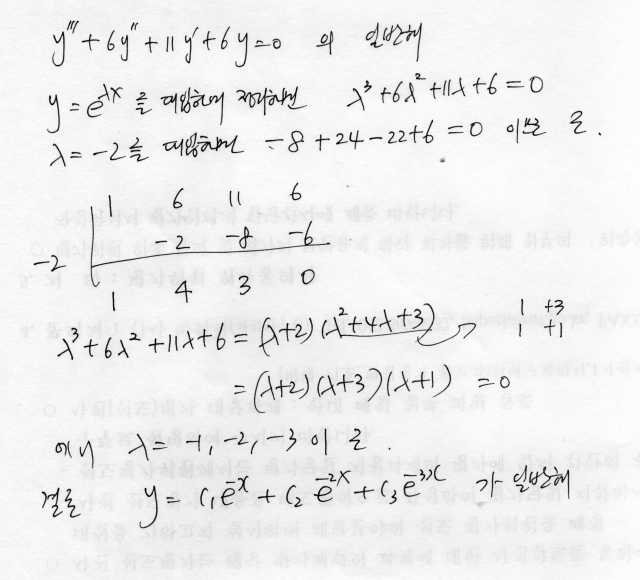 y''' + 6y'' + 11y' + 6y = 0 의 일반해
y = e^{λx} 를 대입하여 정리하면 λ³ + 6λ² + 11λ + 6 = 0
λ = -2 를 대입하면 -8 + 24 - 22 + 6 = 0 이므로.
1 6 11 6
-2 2 -8 -6
1 4 3 0
λ³ + 6λ² + 11λ + 6 = (λ+2)(λ²+4λ+3) → 1 +3
1 +1
= (λ+2)(λ+3)(λ+1) = 0
에서 λ = -1, -2, -3 이므로.
결론 y = c₁e^{-x} + c₂e^{-2x} + c₃e^{-3x} 가 일반해